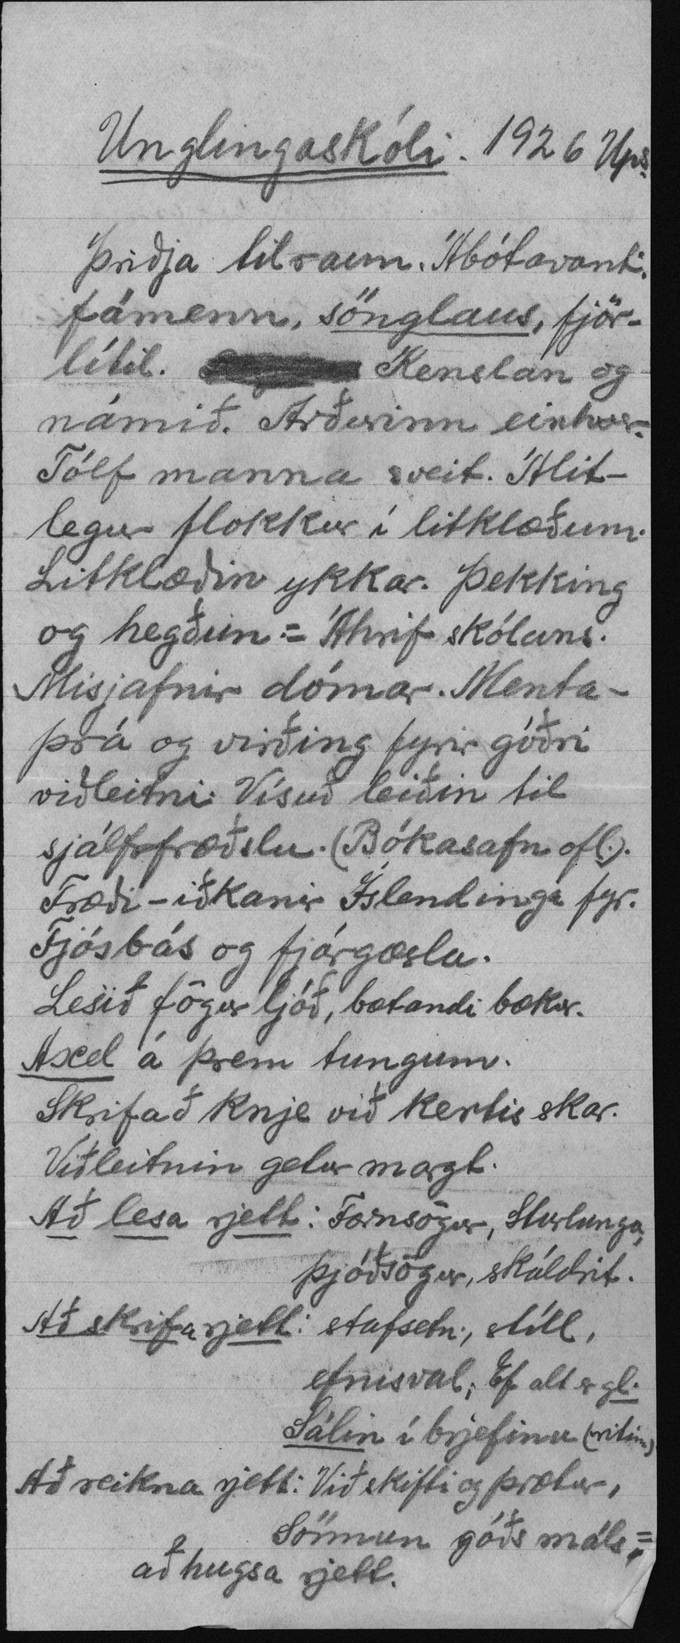 Unglingaskóli. 1926 Ups.
Þriðja tilraun. Ábótavant:
fámenn, sönglaus, fjör-
lítil. Kenslan og
námið. Arðurinn einhver.
Tólf manna sveit. Álit-
legur flokkur í litklæðum.
Litklæðin ykkar. Þekking
og hegðun = Áhrif skólans.
Misjafnir dómar. Menta-
þrá og virðing fyrir góðri
viðleitni. Vísuð leiðin til
sjálfsfræðslu. (Bókasafn ofl.).
Fræði-iðkanir Íslendinga fyr.
Fjósbás og fjárgæsla.
Lesið fögur ljóð, bætandi bækur.
Axel á þrem tungum.
Skrifað á knje við kertis skar.
Viðleitnin getur margt.
Að lesa rjett: Fornsögur, Sturlunga,
þjóðsögur, skáldrit.
Að skrifa rjett: stafsetn., stíll,
efnisval; Ef alt er gl.
Sálin í brjefinu (ritinu)
Að reikna rjett: Viðskifti og þrætur,
Sönnun góðs máls, =
að hugsa rjett.